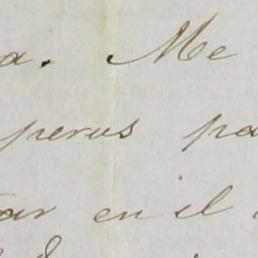 a. Me
perus pa
tar en el